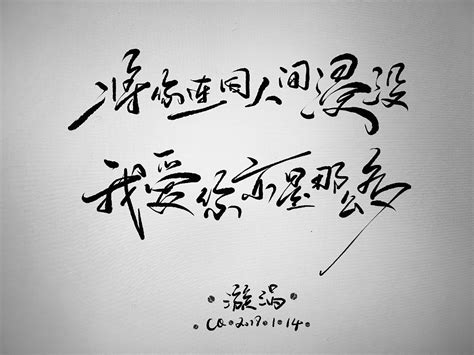 将你连同人间浸没
我爱你亦是那么多
漩涡
CQ·2018·1·14